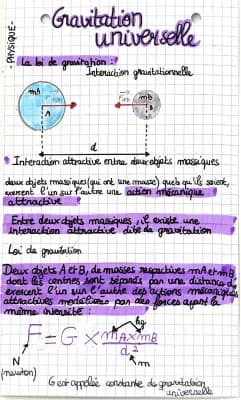 - PHYSIQUE -
Gravitation
universelle
La loi de gravitation :
Interaction gravitationnelle
mA
mB
A
B
d
Interaction attractive entre deux objets massiques
deux objets massiques (qui ont une masse) quels qu'ils soient,
exercent l'un sur l'autre une action mécanique
attractive
Entre deux objets massiques, il existe une
interaction attractive dite de gravitation
Loi de gravitation
Deux objets A et B, de masses respectives mA et mB,
dont les centres sont séparés par une distance d
exercent l'un sur l'autre des actions mécaniques
attractives modélisées par des forces ayant la
même intensité :
kg
F = G × mA × mB
d²
N
(newton)
m
G est appelée constante de gravitation
universelle